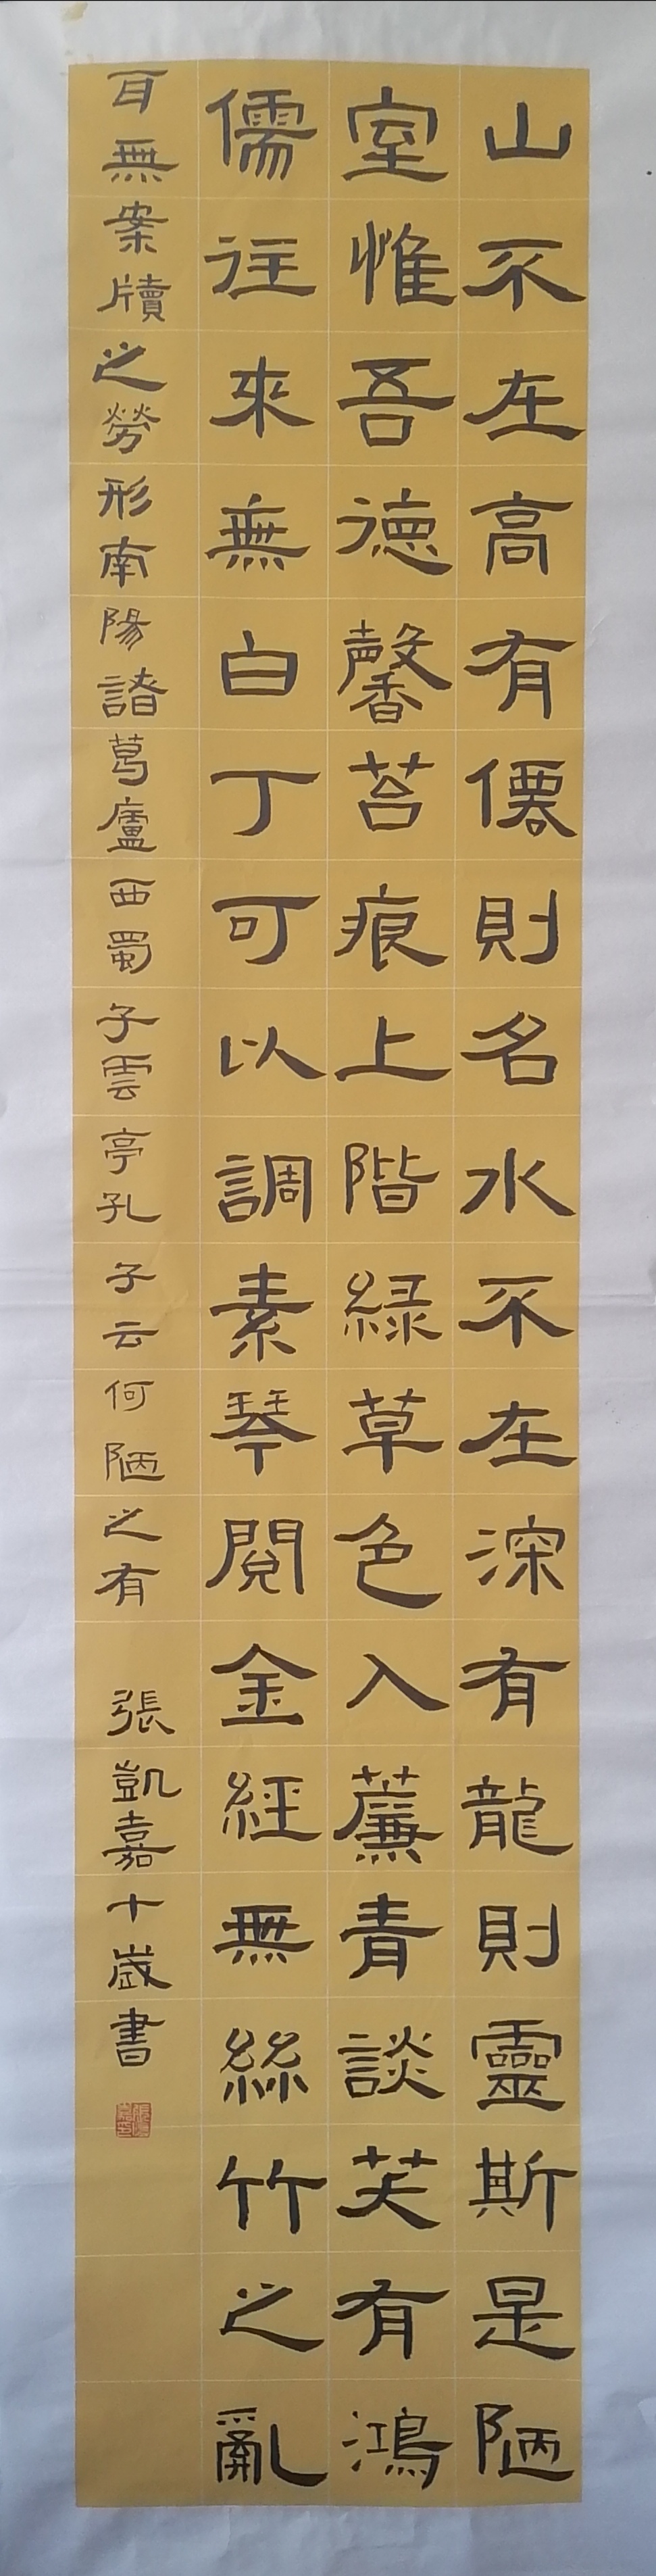 山不在高有僊則名水不在深有龍則靈斯是陋
室惟吾德馨苔痕上階緑草色入薕青談芺有鴻
儒往來無白丁可以調素琴閱金經無絲竹之亂
耳無案牘之勞形南陽諸葛廬西蜀子雲亭孔子云何陋之有 張凱嘉十歲書